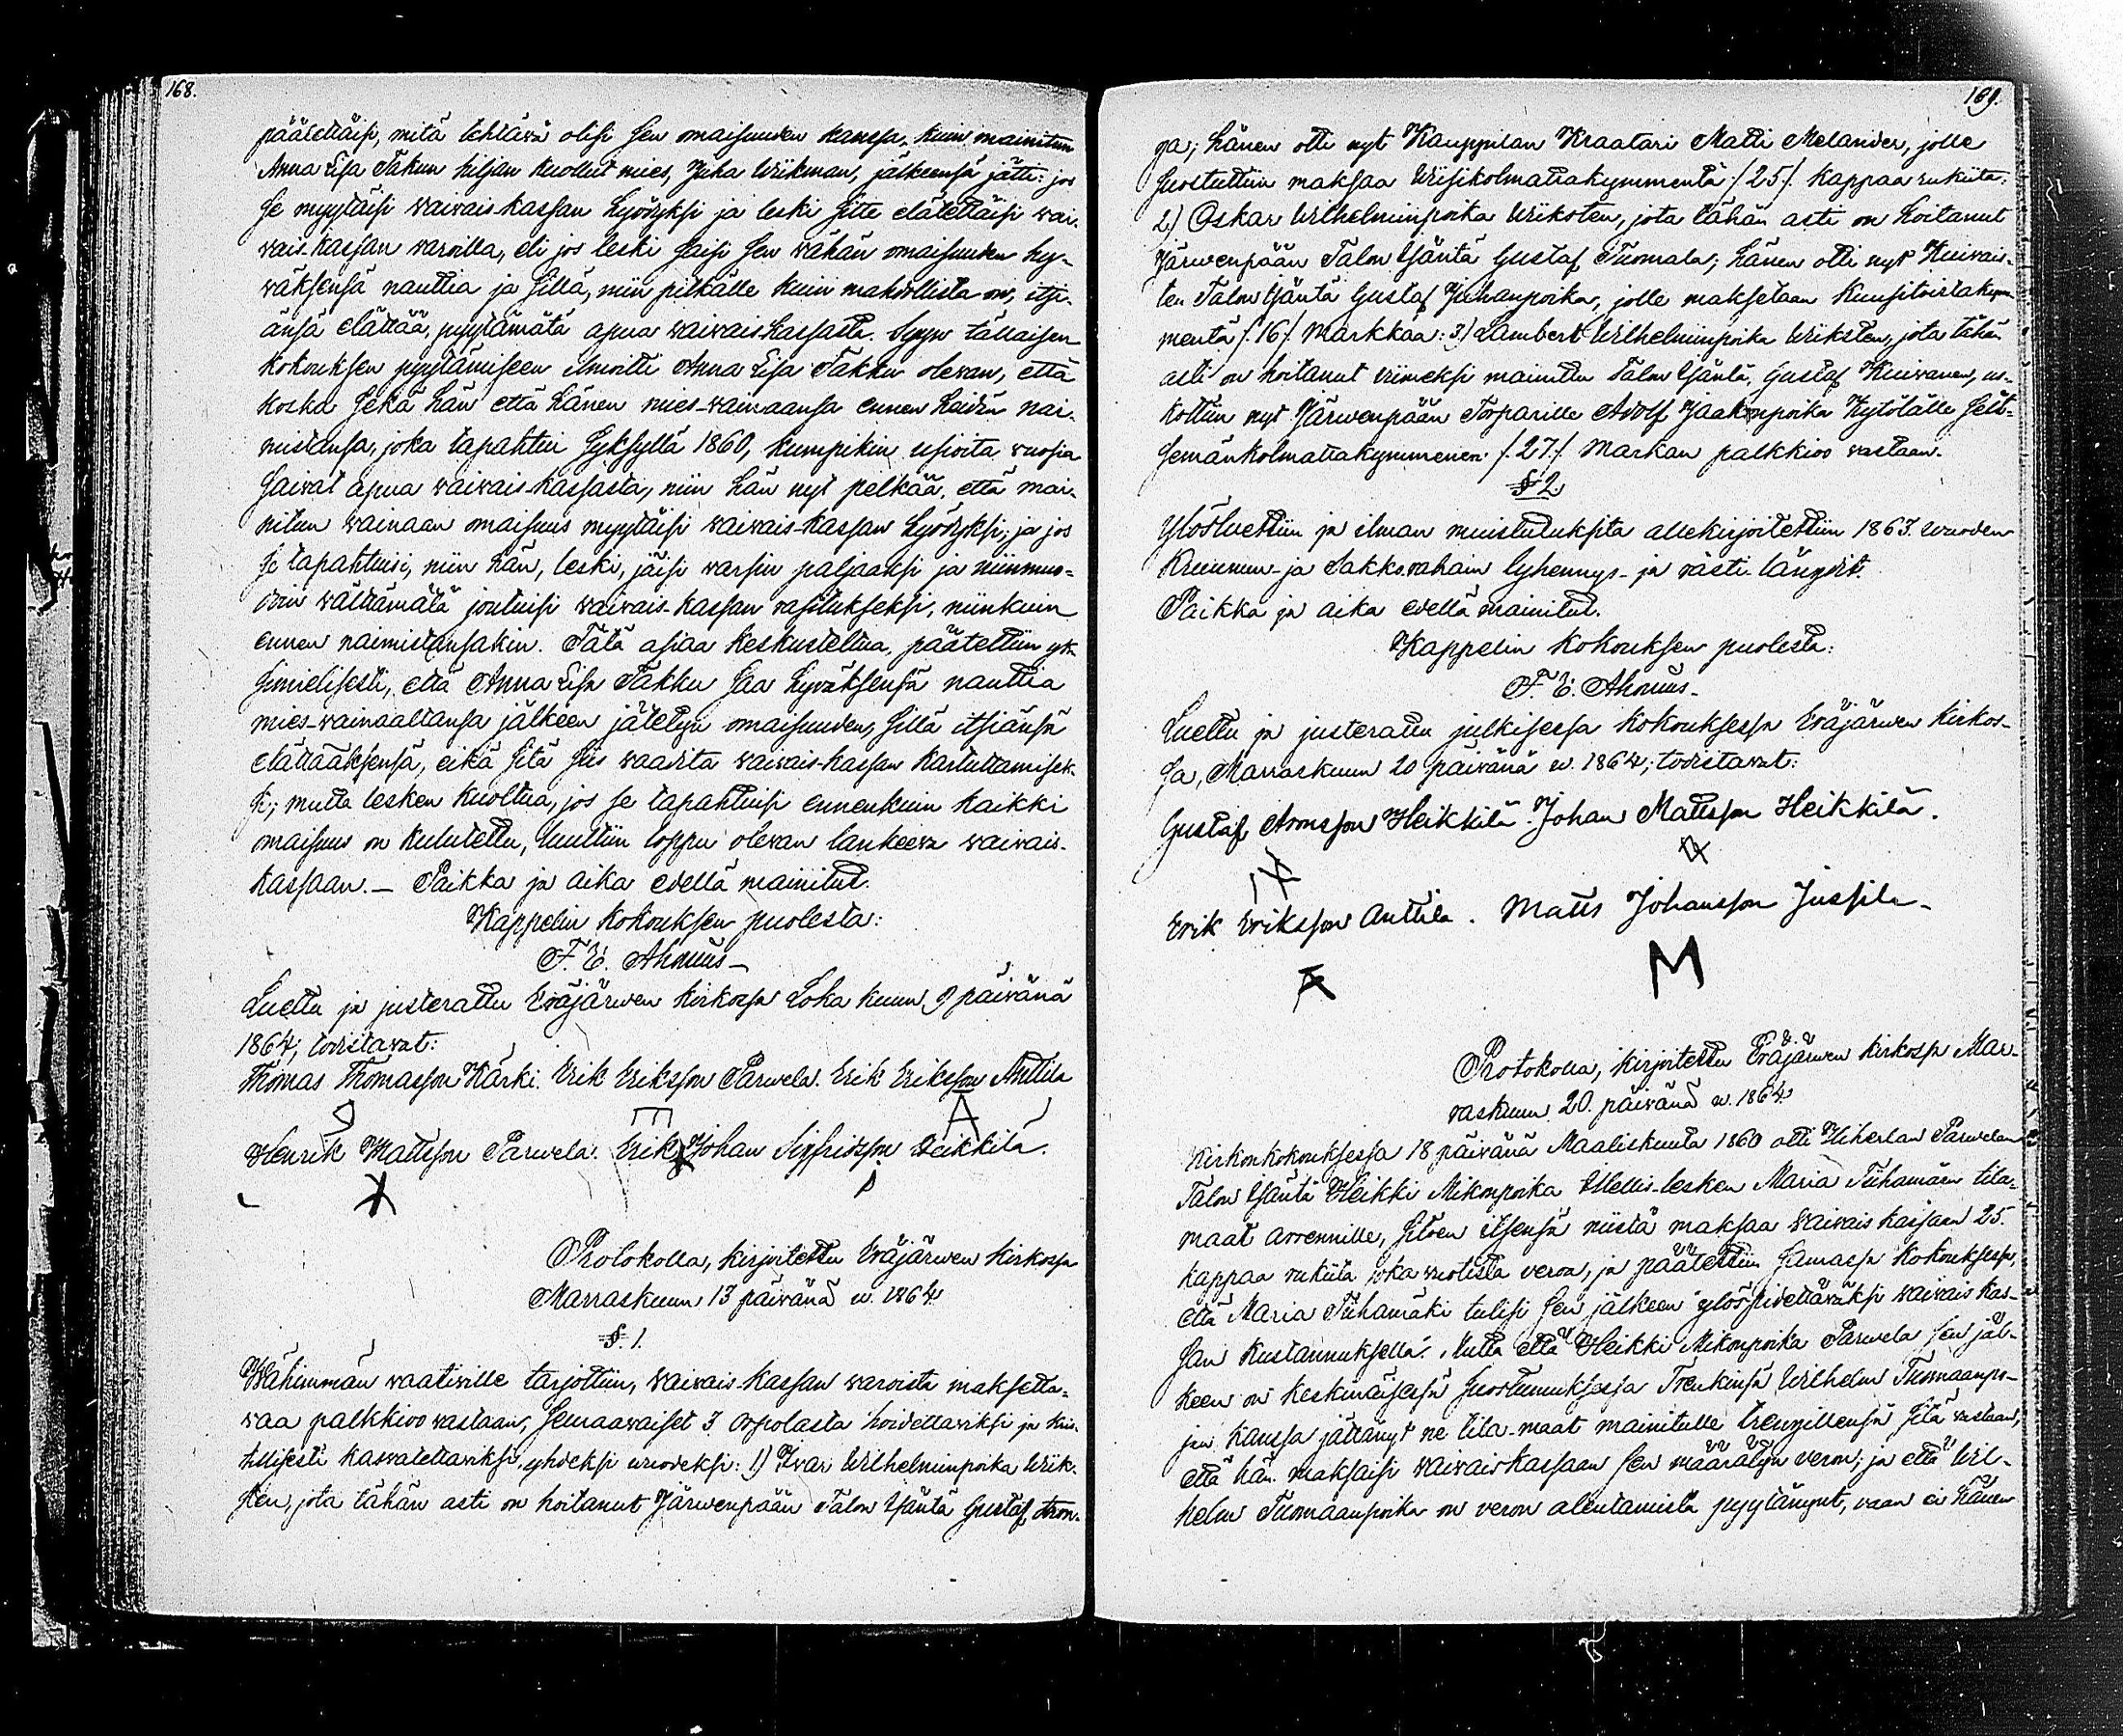 168.
päätettäisi, mitä tehtävä olisi sen omaisuuden kanssa, kuin mainitun
Anna Lisa Takun hiljan kuollut mies, Juha Wikman, jälkeensä jätti: jos
se myytäisi waiwais-kassan hyödyksi ja leski sitte elätettäisi wai-
wais-kassan waroilla, eli jos leski saisi sen wähän omaisuuden hy-
wäksensä nauttia ja sillä, niin pitkälle kuin mahdollista on, itse-
änsä elättää, pyytämätä apua waiwaiskassasta. Syyn tällaisen
kokouksen pyytämiseen ilmoitti Anna Lisa Takku olewan, että
koska sekä hän että hänen mies-wainaansa ennen heidän nai-
mistansa, joka tapahtui syksyllä 1860, kumpikin usioita wuosia
saiwat apua waiwais-kassasta, niin hän nyt pelkää, että mai-
nitun wainaan omaisuus myytäisi waiwais-kassan hyödyksi; ja jos
se tapahtuisi, niin hän, leski, jäisi warsin paljaaksi ja niinmuo-
doin wälttämätä joutuisi waiwais-kassan rasitukseksi, niinkuin
ennen naimistansakin. Tätä asiaa keskusteltua, päätettiin yk-
simielisesti, että Anna Lisa Takku saa hywäksensä nauttia
mies-wainaaltansa jälkeen jätetyn omaisuuden, sillä itsiänsä
elättääksensä, eikä sitä siis waadita waiwais-kassan kartuttamisek-
si; mutta lesken kuoltua, jos se tapahtuisi ennenkuin kaikki
omaisuus on kulutettu, luultiin loppu olewan lankeewa waiwais-
kassaan. — Paikka ja aika edellä mainitut.
Kappelin kokouksen puolesta:
F. E. Ahonius
Luettu ja justerattu Eräjärwen kirkossa Loka kuun 9 päiwänä
1864; todistawat:
Thomas Thomasson Kärki. Erik Eriksson Parwela. Erik Eriksson Anttila
A
Henrik Mattsson Parwela. Erik Johan Sigfridsson Heikkilä.
Protokolla, kirjoitettu Eräjärwen kirkossa
Marraskuun 13 päiwänä w. 1864.
§. 1.
Wähimmän waatiwille tarjottiin, waiwais-kassan waroista maksetta-
waa palkkioo wastaan, seuraawaiset 3 orpolasta hoidettawiksi ja kris-
tillisesti kaswatettawiksi, yhdeksi wuodeksi: 1) Iwar Wilhelminpoika Wik-
sten, jota tähän asti on hoitanut Järwenpään Talon Isäntä Gustaf Aron-
169.
pa; hänen otti nyt Kauppilan Kraatari Matti Melander, jolle
suostuttiin maksaa Wiisikolmattakymmentä /: 25 :/ kappaa rukiita:
2) Oskar Wilhelminpoika Wiksten, jota tähän asti on hoitanut
Järwenpään Talon Isäntä Gustaf Tuomala; hänen otti nyt Kuiwais-
ten Talon Isäntä Gustaf Juhanpoika, jolle maksetaan kuusitoistakym-
mentä /: 16 :/ Markkaa: 3) Lambert Wilhelminpoika Wiksten, jota tähän
asti on hoitanut wiimeksi mainittu Talon Isäntä, Gustaf Kuiwanen, us-
kottiin nyt Järwenpään Torparille Adolf Jaakonpoika Kytölälle seit-
semänkolmattakymmenen /: 27 :/ Markan palkkioo wastaan.
§ 2.
Ylösluettiin ja ilman muistutuksita allekirjoitettiin 1863. wuoden
Kruunun- ja Sakko-rahain lyhennys- ja rästi-längdit.
Paikka ja aika edellä mainitut.
Kappelin kokouksen puolesta:
F. E. Ahonius
Luettu ja justerattu julkisessa kokouksessa Eräjärwen kirkos-
sa, Marraskuun 20 päiwänä w. 1864; todistawat:
Gustaf Aronsson Heikkilä. Johan Mattsson Heikkilä.
Erik Eriksson Anttila. Matts Johansson Jussila
M
Protokolla, kirjoitettu Eräjärwen kirkossa Mar-
raskuun 20. päiwänä w. 1864
Kirkonkokouksessa 18 päiwänä Maaliskuuta 1860 otti Hiherlan Parwelan
Talon Isäntä Heikki Mikonpoika Itellis-lesken Maria Tiihamäen tila-
maat arrennille, sitoen itsensä niistä maksaa Waiwaiskassaan 25.
kappaa rukiita joka wuotista weroa, ja päätettiin samassa kokouksessa,
että Maria Tiihamäki tulisi sen jälkeen ylöspidettäwäksi waiwais kas-
san kustannuksella. Mutta että Heikki Mikonpoika Parwela sen jäl-
keen on keskinäisessä suostumuksessa Trenkinsä Wilhelm Tuomaanpo-
jan kanssa jättänyt ne tila-maat mainitulle trengillensä sitä wastaan,
että hän maksaisi waiwaiskassaan sen määrätyn weron; ja että Wil-
helm Tuomaanpoika on weron alentamista pyytänyt, waan ei hänen